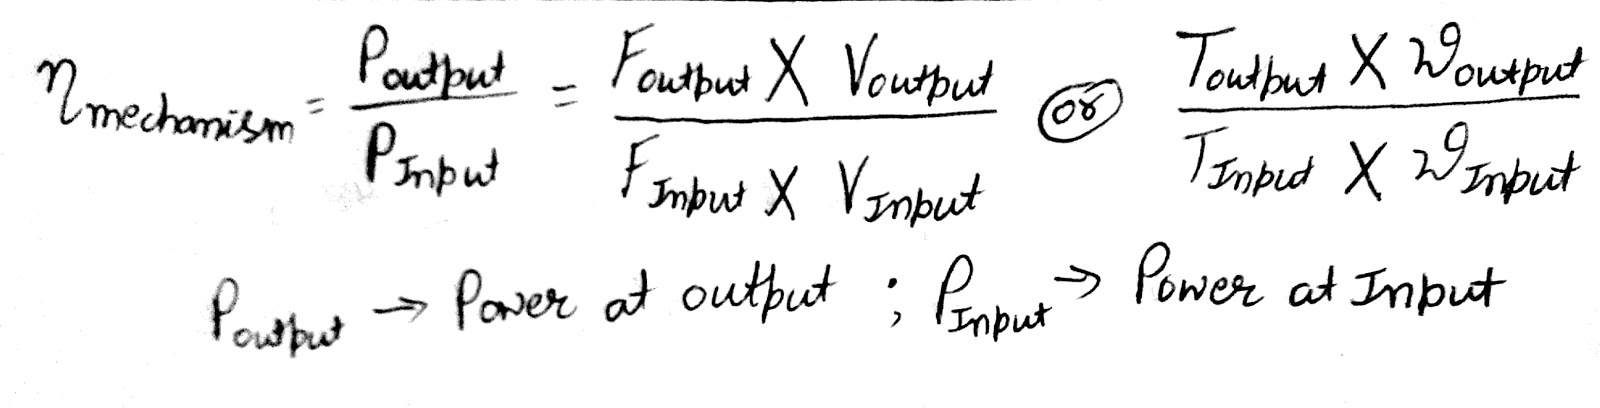 η mechanism = P output / P Input = F output X V output / F Input X V Input or T output X ω output / T Input X ω Input
P output → Power at output ; P Input → Power at Input